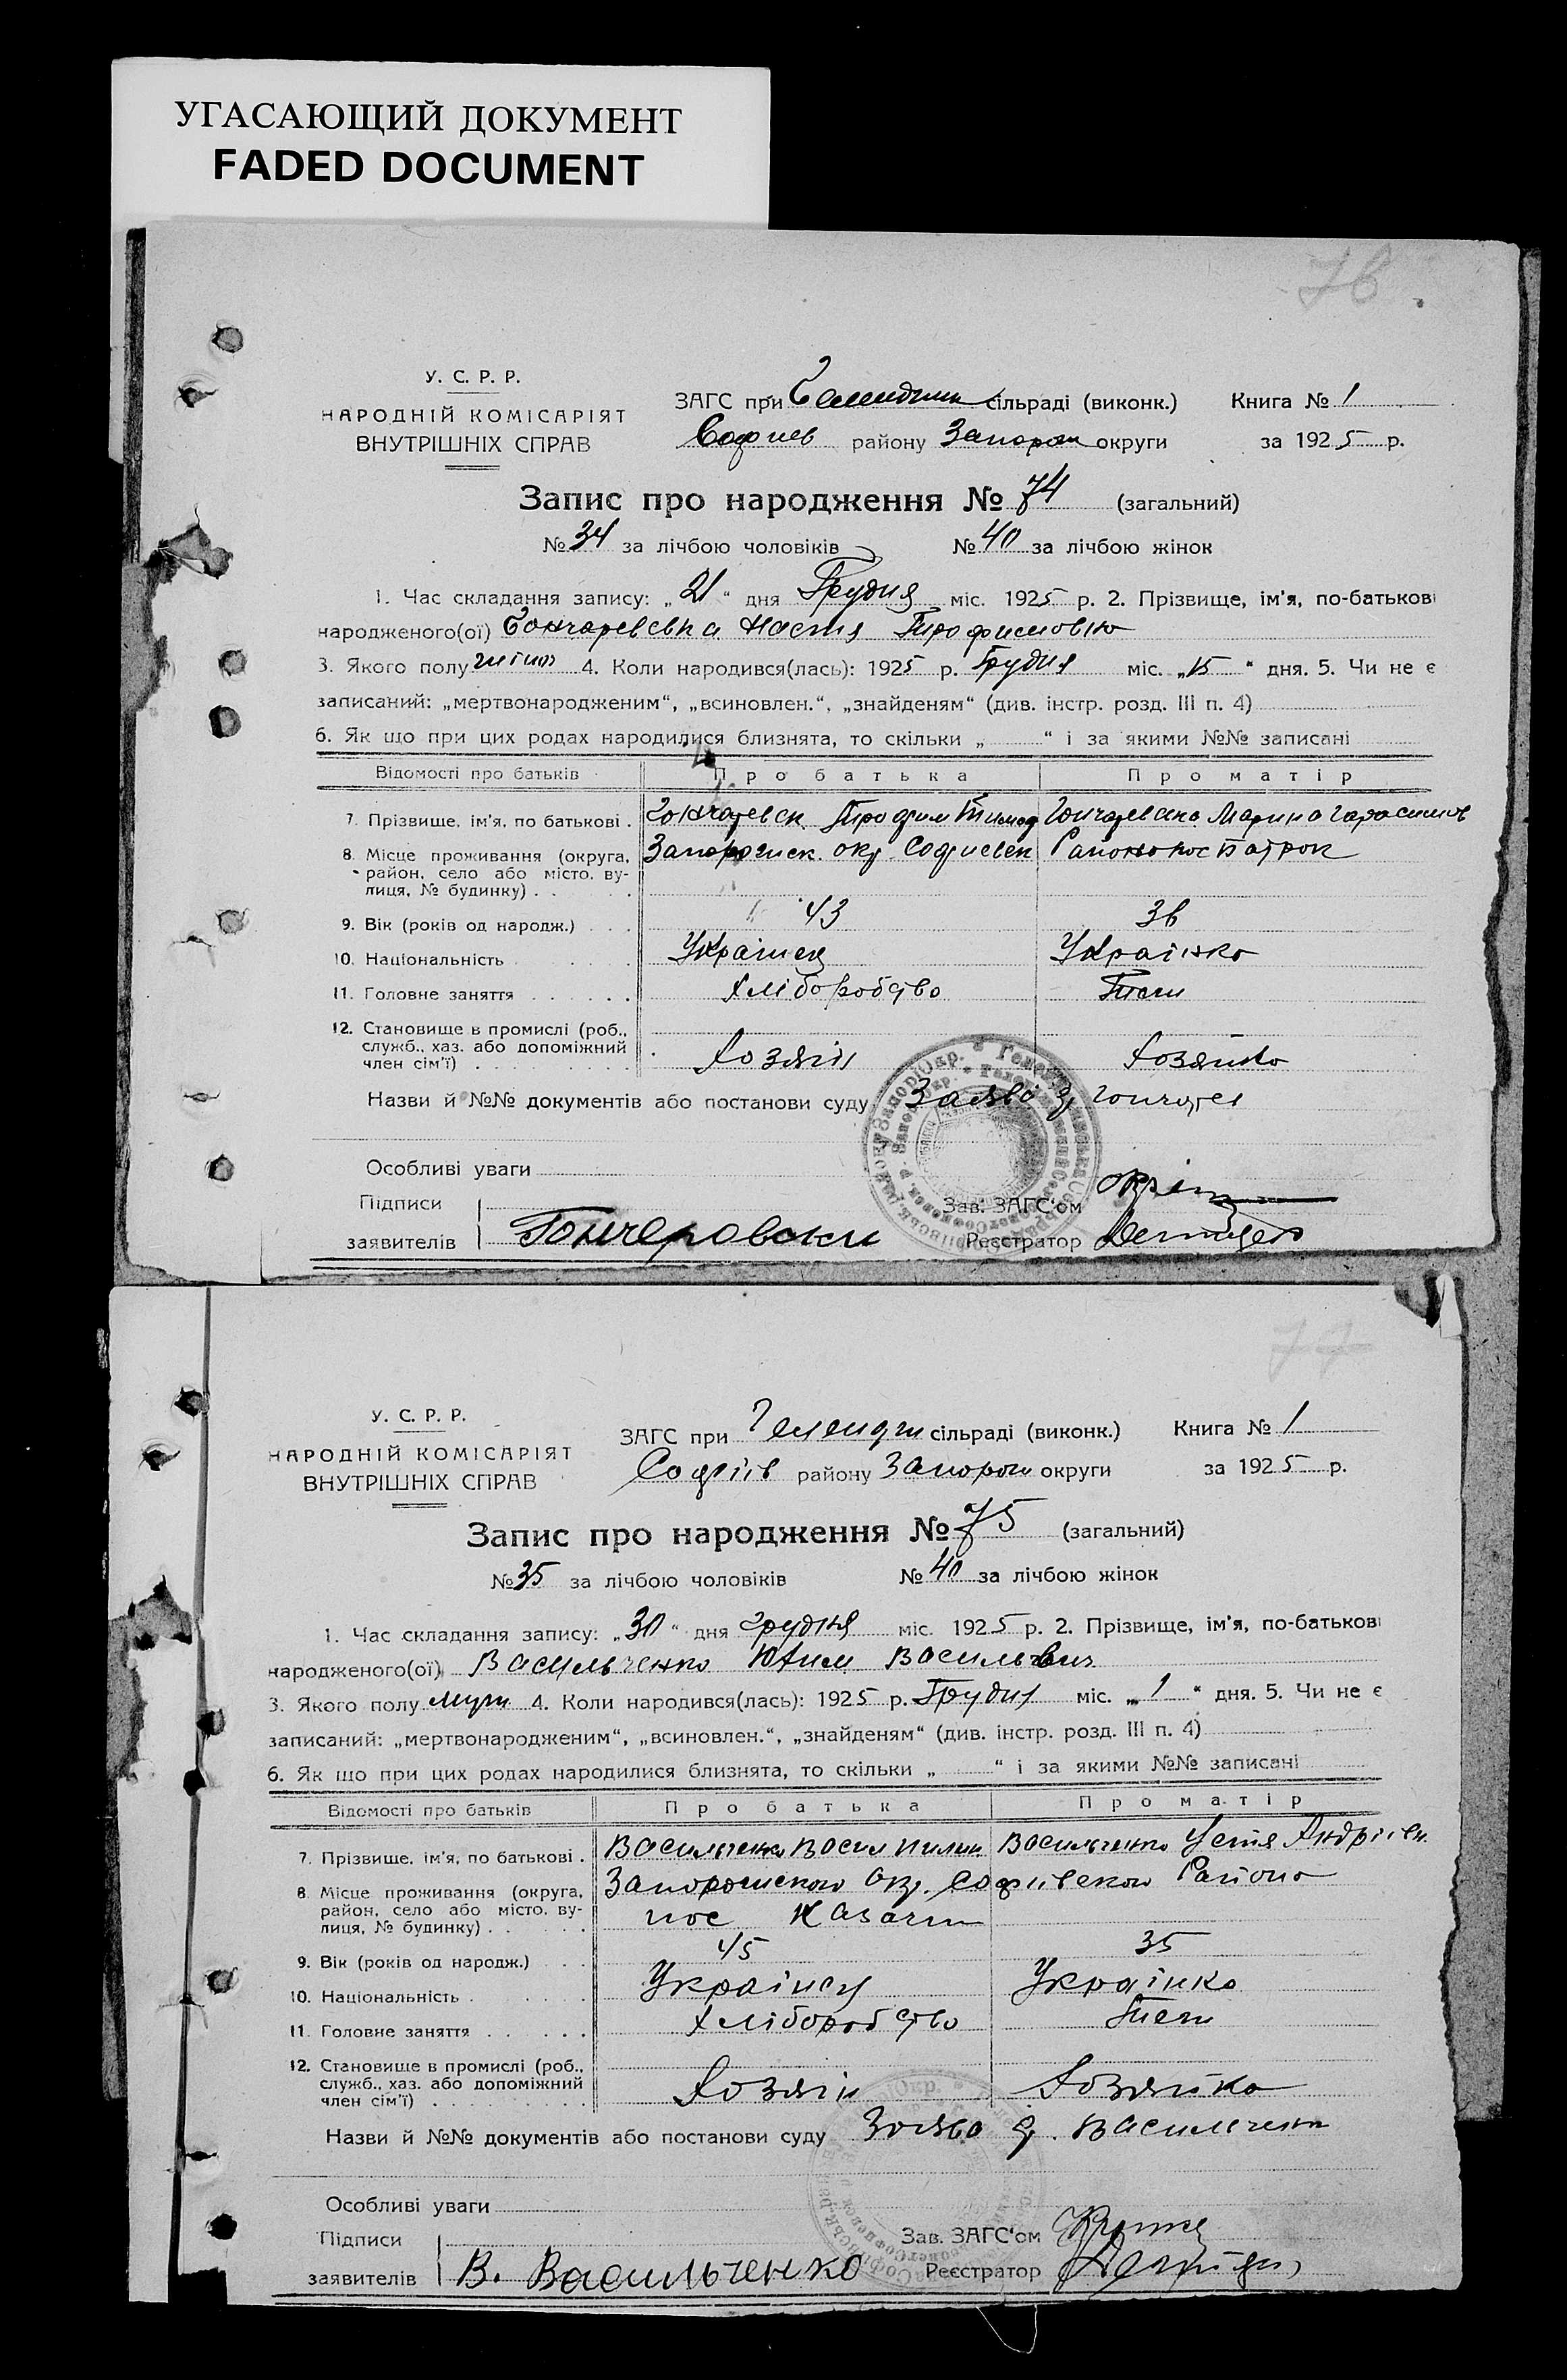 УГАСАЮЩИЙ ДОКУМЕНТ
FADED DOCUMENT
76
У. С. Р. Р.
НАРОДНІЙ КОМІСАРІЯТ
ВНУТРІШНІХ СПРАВ
ЗАГС при сільраді (виконк.) Книга № 1
Софиев району Запорож округи за 1925 р.
Запис про народження № 74 (загальний)
№ 34 за лічбою чоловіків № 40 за лічбою жінок
1. Час складання запису: „21“ дня Грудня міс. 1925 р. 2. Прізвище, ім’я, по-батькові
народженого(ої) Гончаревська Настя Трофимовна
3. Якого полу жіноч 4. Коли народився(лась): 1925 р. Грудня міс. „15“ дня. 5. Чи не є
записаний: „мертвонародженим“, „всиновлен.“, „знайденям“ (див. інстр. розд. III п. 4)
6. Як що при цих родах народилися близнята, то скільки „ “ і за якими №№ записані
Відомості про батьків Про батька Про матір
7. Прізвище, ім’я, по батькові . Гончаревск Трофим Тимоф Гончаревска Марина Гарасимов
8. Місце проживання (округа, Запорожск. окр. Софиевск Района пос
район, село або місто, ву-
лиця, № будинку) . . .
9. Вік (років од народж.) . . . 43 36
10. Національність . . . . . Українец Українка
11. Головне заняття . . . . . . Хліборобство Теж
12. Становище в промислі (роб.,
служб., хаз. або допоміжний Хозяін Хозяйка
член сім’ї) . . . . . . . .
Назви й №№ документів або постанови суду Заява г. Гончарев
Особливі уваги
Підписи Зав. ЗАГС‘ом
заявителів Гончеровски Реєстратор
77
У. С. Р. Р.
НАРОДНІЙ КОМІСАРІЯТ
ВНУТРІШНІХ СПРАВ
ЗАГС при Геленджи сільраді (виконк.) Книга № 1
Софіїв району Запорож округи за 1925 р.
Запис про народження № 75 (загальний)
№ 35 за лічбою чоловіків № 40 за лічбою жінок
1. Час складання запису: „30“ дня грудня міс. 1925 р. 2. Прізвище, ім’я, по-батькові
народженого(ої) Васильченко Юхим Васильевич
3. Якого полу муж 4. Коли народився(лась): 1925 р. Грудня міс. „1“ дня. 5. Чи не є
записаний: „мертвонародженим“, „всиновлен.“, „знайденям“ (див. інстр. розд. III п. 4)
6. Як що при цих родах народилися близнята, то скільки „ “ і за якими №№ записані
Відомості про батьків Про батька Про матір
7. Прізвище, ім’я, по батькові . Васильченко Васил Пилип Васильченко Устя Андріївн.
8. Місце проживання (округа, Запорожского Окр. Софіївского Района
район, село або місто, ву-
лиця, № будинку) . . . . пос Казачи
9. Вік (років од народж.) . . . 45 35
10. Національність . . . . . Українец Українка
11. Головне заняття . . . . . . Хліборобство Теж
12. Становище в промислі (роб.,
служб., хаз. або допоміжний Хозяін Хозяйка
член сім’ї) . . . . . . . .
Назви й №№ документів або постанови суду Заява г. Васильченк
Особливі уваги
Підписи Зав. ЗАГС‘ом
заявителів В. Васильченко Реєстратор